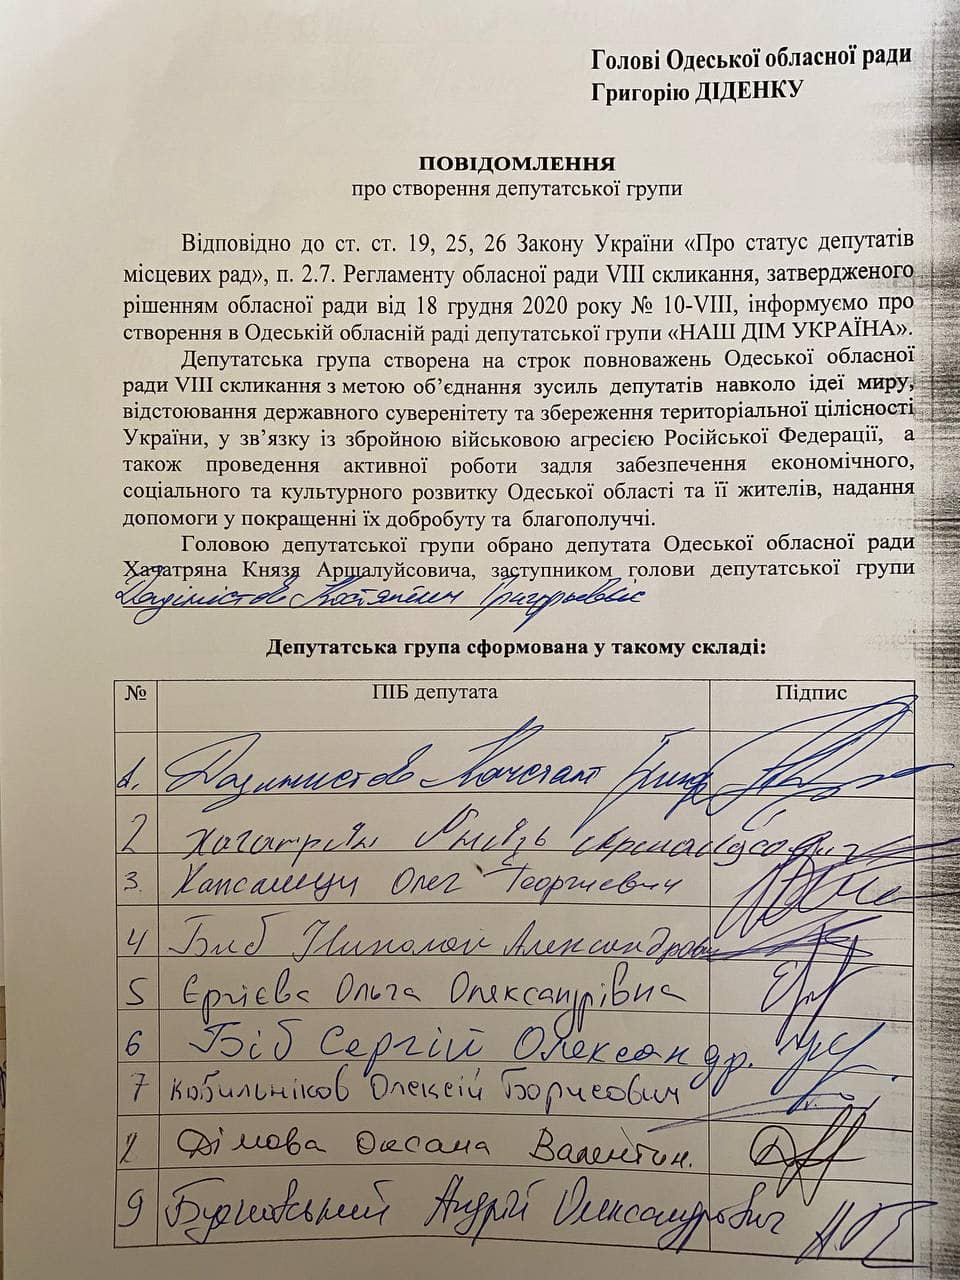 Голові Одеської обласної ради
Григорію ДІДЕНКУ
ПОВІДОМЛЕННЯ
про створення депутатської групи
Відповідно до ст. ст. 19, 25, 26 Закону України «Про статус депутатів
місцевих рад», п. 2.7. Регламенту обласної ради VIII скликання, затвердженого
рішенням обласної ради від 18 грудня 2020 року № 10-VIII, інформуємо про
створення в Одеській обласній раді депутатської групи «НАШ ДІМ УКРАЇНА».
Депутатська група створена на строк повноважень Одеської обласної
ради VIII скликання з метою об’єднання зусиль депутатів навколо ідеї миру,
відстоювання державного суверенітету та збереження територіальної цілісності
України, у зв’язку із збройною військовою агресією Російської Федерації, а
також проведення активної роботи задля забезпечення економічного,
соціального та культурного розвитку Одеської області та її жителів, надання
допомоги у покращенні їх добробуту та благополуччі.
Головою депутатської групи обрано депутата Одеської обласної ради
Хачатряна Князя Аршалуйсовича, заступником голови депутатської групи
Депутатська група сформована у такому складі:
№ ПІБ депутата Підпис
1.
2 Хачатрян Князь
3. Капсамун Олег Георгиевич
4 Биб Николай Александрович
5 Єргієва Ольга Олександрівна
6 Біб Сергій Олександр.
7 Кобильніков Олексій Борисович
8 Дімова Оксана Валентин.
9 Андрій Олександрович